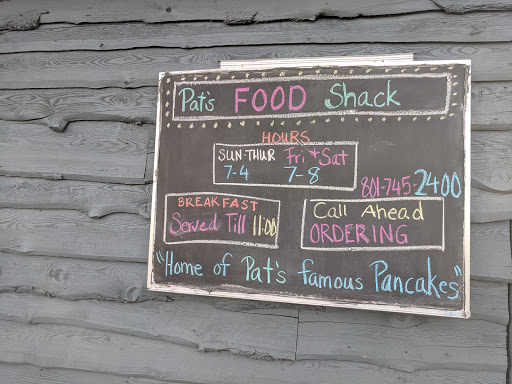 Pat's FOOD Shack
HOURS
SUN-THUR Fri + Sat
7-4 7-8
801-745-2400
BREAKFAST
Served Till 11:00
Call Ahead
ORDERING
"Home of Pat's famous Pancakes"